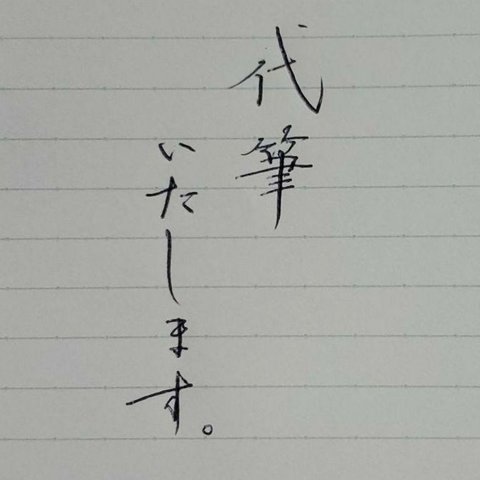 代筆
いたします。